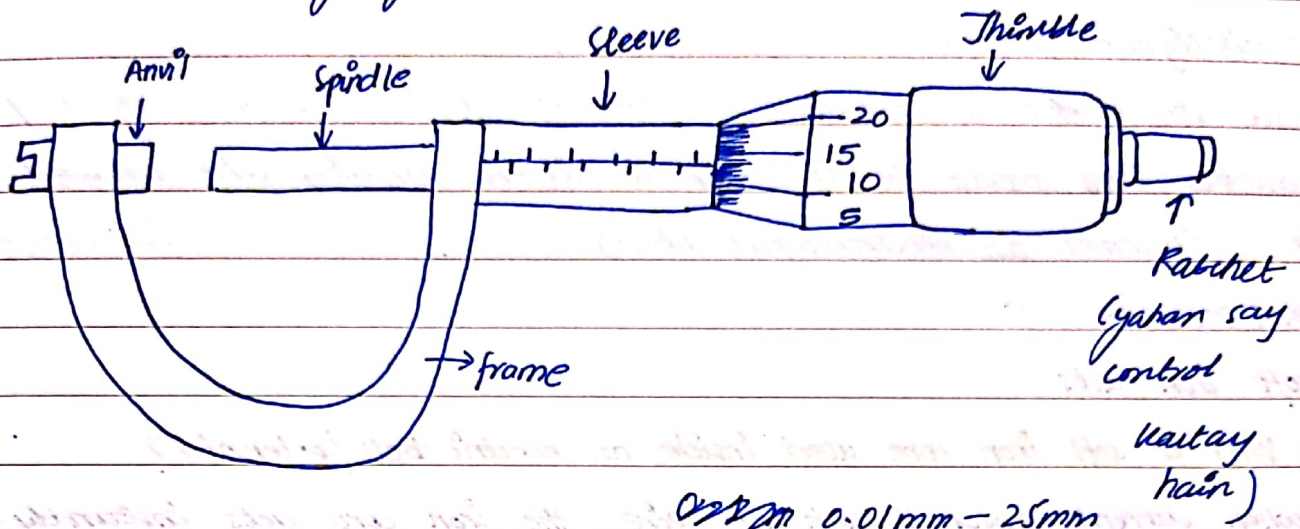 Anvil
Spindle
Sleeve
Thimble
20
15
10
5
Ratchet
(yahan say
control
kartay
hain)
frame
0.01mm - 25mm